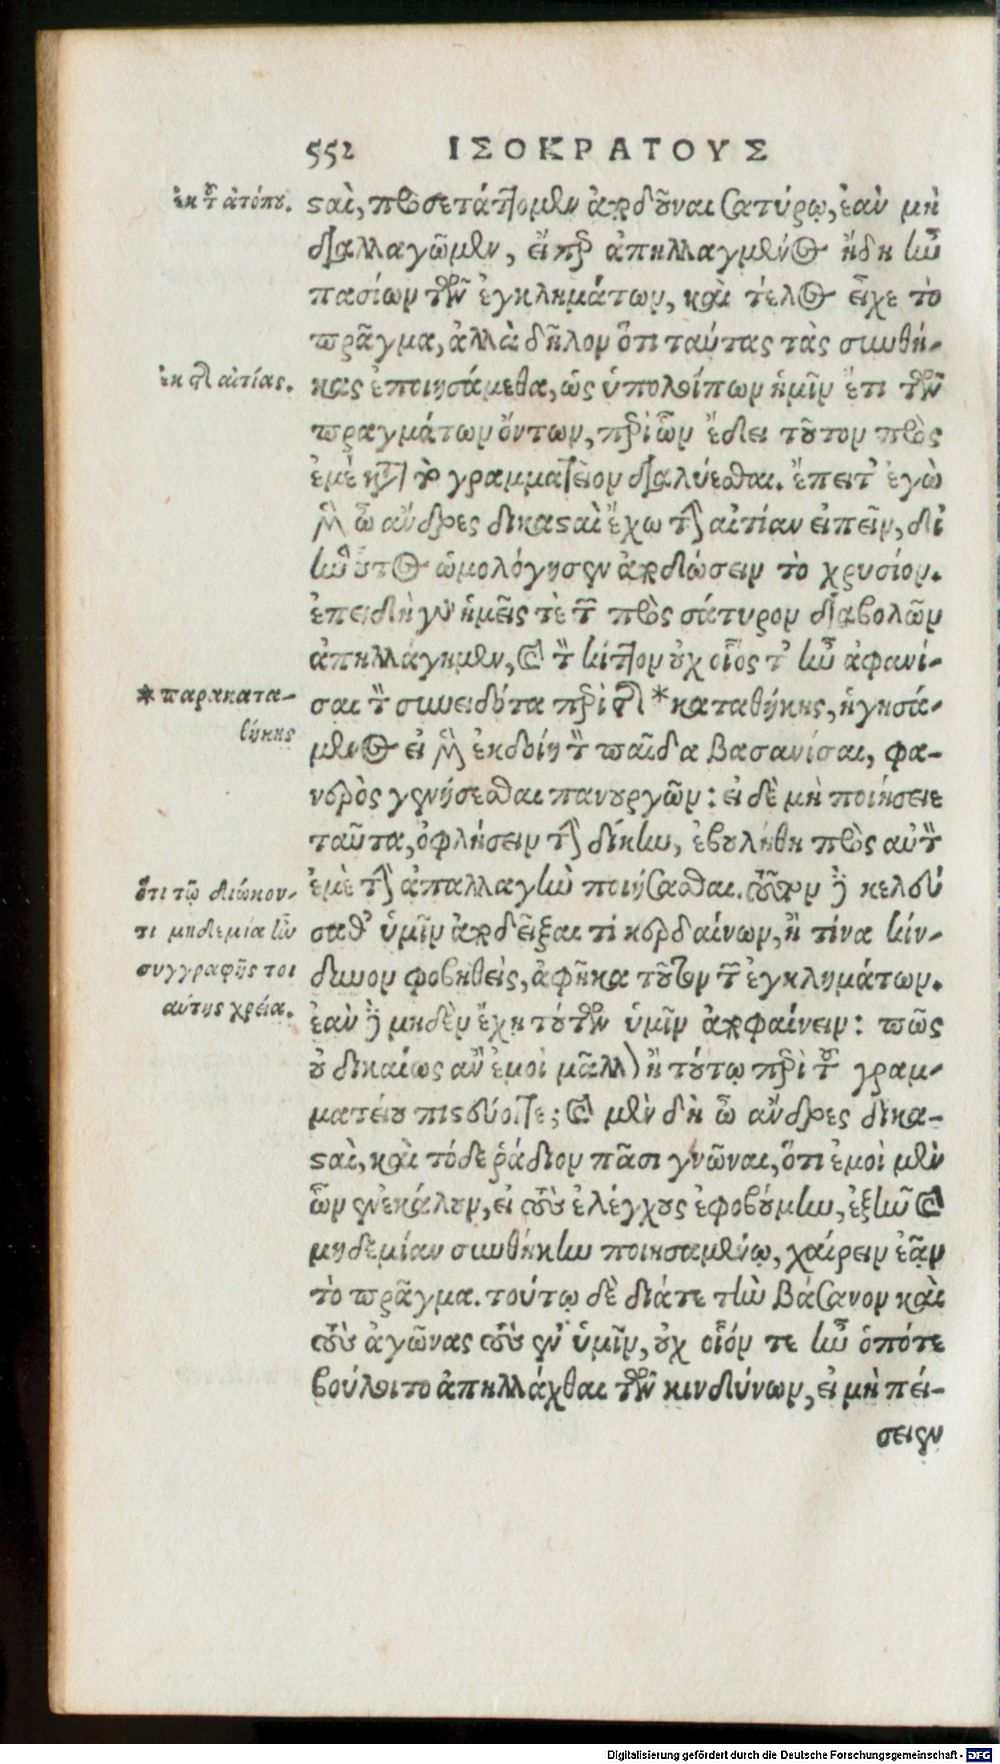 552 ΙΣΟΚΡΑΤΟΥΣ
ἐκ τοῦ ἀτόπου.
σαὶ, προσετάττομεν ἀποδοῦναι Σατύρῳ, ἐὰν μὴ
διαλλαγῶμεν, εἴπερ ἀπηλλαγμένος ἤδη ἦν
πασίων τῶν ἐγκλημάτων, καὶ τέλος εἶχε τὸ
πρᾶγμα, ἀλλὰ δῆλον ὅτι ταύτας τὰς συνθή-
ἐκ τῆς αἰτίας.
κας ἐποιησάμεθα, ὡς ὑπολοίπων ἡμῖν ἔτι τῶν
πραγμάτων ὄντων, περὶ ὧν ἔδει τοῦτον πρὸς
ἐμὲ κατὰ τὸ γραμματεῖον διαλύεσθαι. ἔπειτ' ἐγὼ
μὲν ὦ ἄνδρες δικασταὶ ἔχω τὴν αἰτίαν εἰπεῖν, δι'
ἣν οὗτος ὡμολόγησεν ἀποδώσειν τὸ χρυσίον.
ἐπειδὴ γὰρ ἡμεῖς τε τῶν πρὸς σάτυρον διαβολῶν
ἀπηλλάγημεν, καὶ τὸν κίττον οὐχ οἷός τ' ἦν ἀφανί-
σαι τὸν συνειδότα περὶ τῆς *καταθήκης, ἡγησά-
*παρακατα-
θήκης
μενος εἰ μὲν ἐκδοίη τὸν παῖδα βασανίσαι, φα-
νερὸς γενήσεσθαι πανουργῶν: εἰ δὲ μὴ ποιήσειε
ταῦτα, ὀφλήσειν τὴν δίκην, ἐβουλήθη πρὸς αὐτὸν
ἐμὲ τὴν ἀπαλλαγὴν ποιήσασθαι. τοῦτον δὲ κελεύ
ὅτι τῷ διώκον-
τι μηδεμία ἦν
συγγραφῆς τοι
αύτης χρεία.
σαθ' ὑμῖν ἀποδεῖξαι τί κερδαίνων, ἢ τίνα κίν-
δυνον φοβηθεὶς, ἀφῆκα τοῦτον τῶν ἐγκλημάτων.
ἐὰν δὲ μηδὲν ἔχῃ τούτων ὑμῖν ἀποφαίνειν: πῶς
οὐ δικαίως ἂν ἐμοὶ μᾶλλον ἢ τούτῳ περὶ τοῦ γραμ-
ματείου πιστεύοιτε; καὶ μὲν δὴ ὦ ἄνδρες δικα-
σταὶ, καὶ τόδε ῥάδιον πᾶσι γνῶναι, ὅτι ἐμοὶ μὲν
ὧν ἐνεκάλουν, εἰ τοὺς ἐλέγχους ἐφοβούμην, ἐξῆν καὶ
μηδεμίαν συνθήκην ποιησαμένῳ, χαίρειν ἐᾷν
τὸ πρᾶγμα. τούτῳ δὲ διά τε τὴν βάσανον καὶ
τοὺς ἀγῶνας τοὺς ἐν ὑμῖν, οὐχ οἷόν τε ἦν ὁπότε
βούλοιτο ἀπηλλάχθαι τῶν κινδύνων, εἰ μὴ πεί-
σειεν
Digitalisierung gefördert durch die Deutsche Forschungsgemeinschaft - DFG